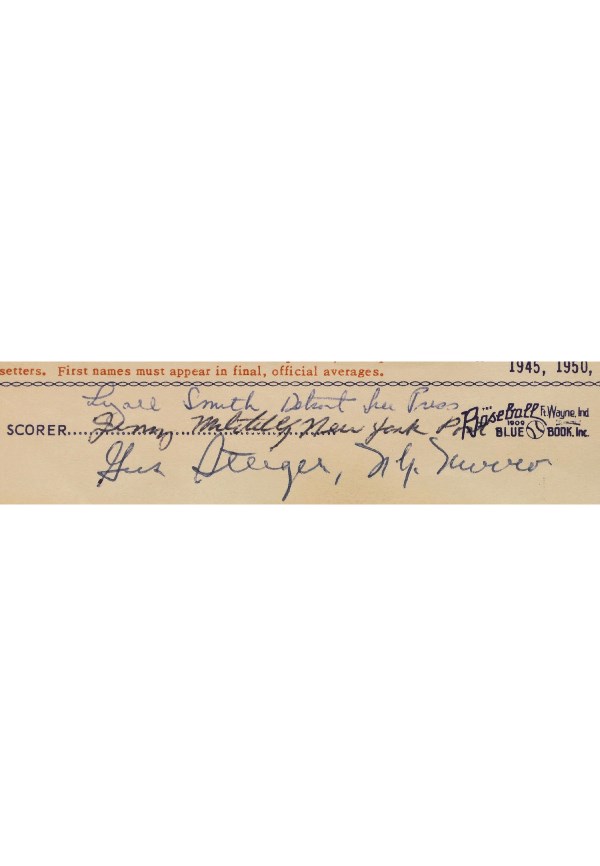 setters. First names must appear in final, official averages.
1945, 1950,
Lyall Smith Detroit Free Press
SCORER
Jerry Mitchell New York Post
Gus Steiger, N.Y. Mirror
Baseball Ft. Wayne, Ind
1909
BLUE BOOK, Inc.